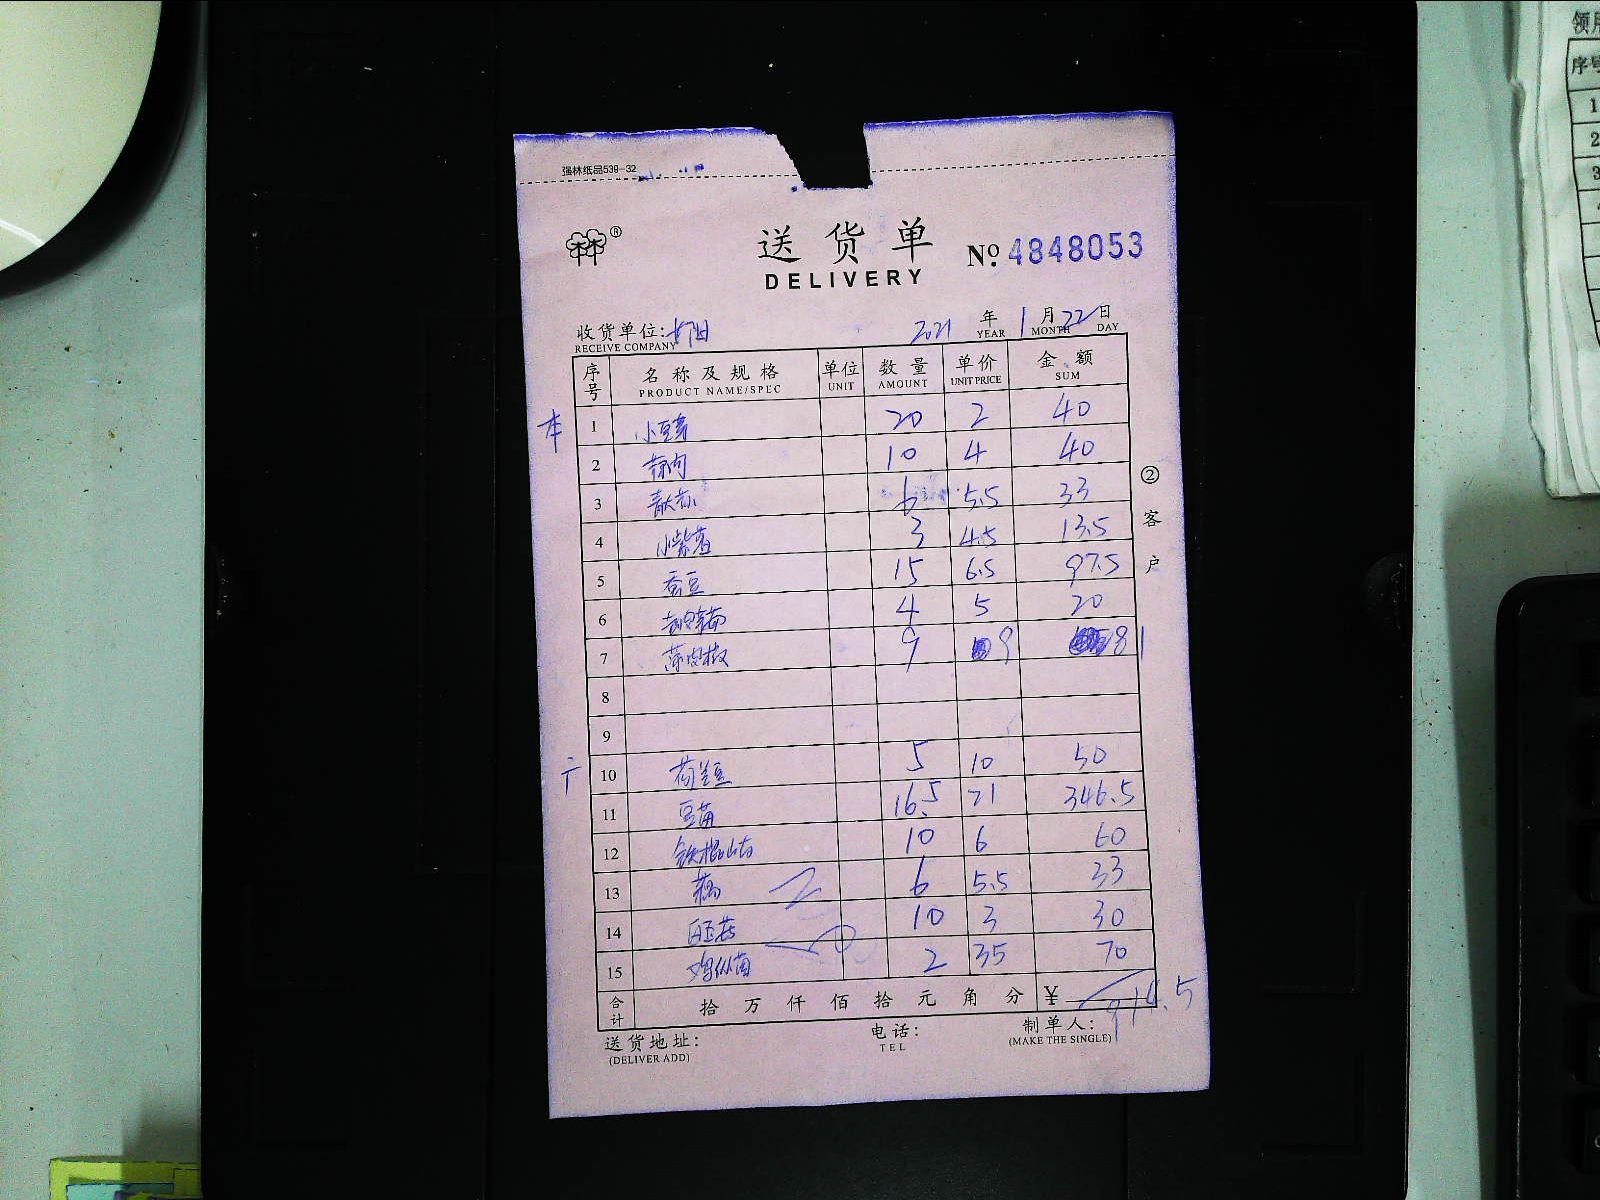 领用
序号
1
2
3
强林纸品539-32
®
送货单 No. 4848053
DELIVERY
收货单位: 2021 年 1 月 22 日
RECEIVE COMPANY YEAR MONTH DAY
序号 名称及规格 单位 数量 单价 金额
PRODUCT NAME/SPEC UNIT AMOUNT UNIT PRICE SUM
本 1 小豆芽 20 2 40
2 10 4 40
3 6 5.5 33
4 小紫薯 3 4.5 13.5
5 蚕豆 15 6.5 97.5
6 4 5 20
7 薄皮椒 9 9 81
8
9
广 10 荷兰豆 5 10 50
11 豆苗 16.5 21 346.5
12 铁棍山药 10 6 60
13 藕 6 5.5 33
14 白玉菇 10 3 30
15 鸡枞菌 2 35 70
合计 拾万仟佰拾元角分 ¥ 914.5
送货地址: 电话: 制单人:
(DELIVER ADD) TEL (MAKE THE SINGLE)
②客户